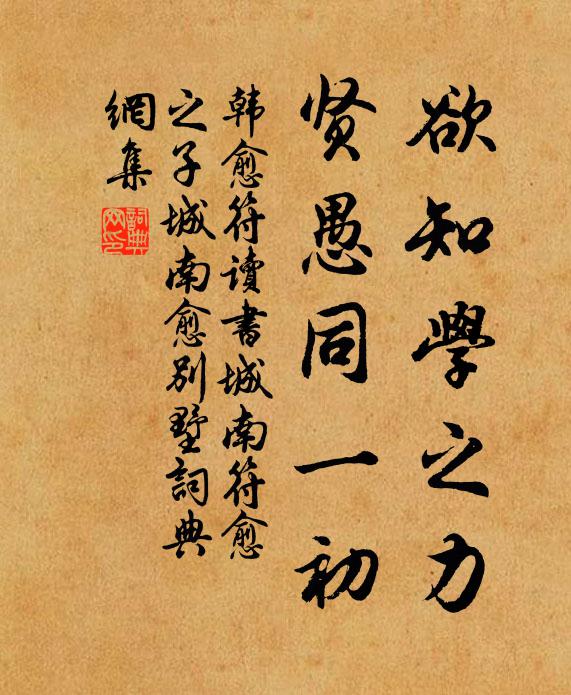 欲知學之力
贤愚同一初
韩愈符讀書城南符愈
之子城南愈别墅詞典
網集
詞典
网印